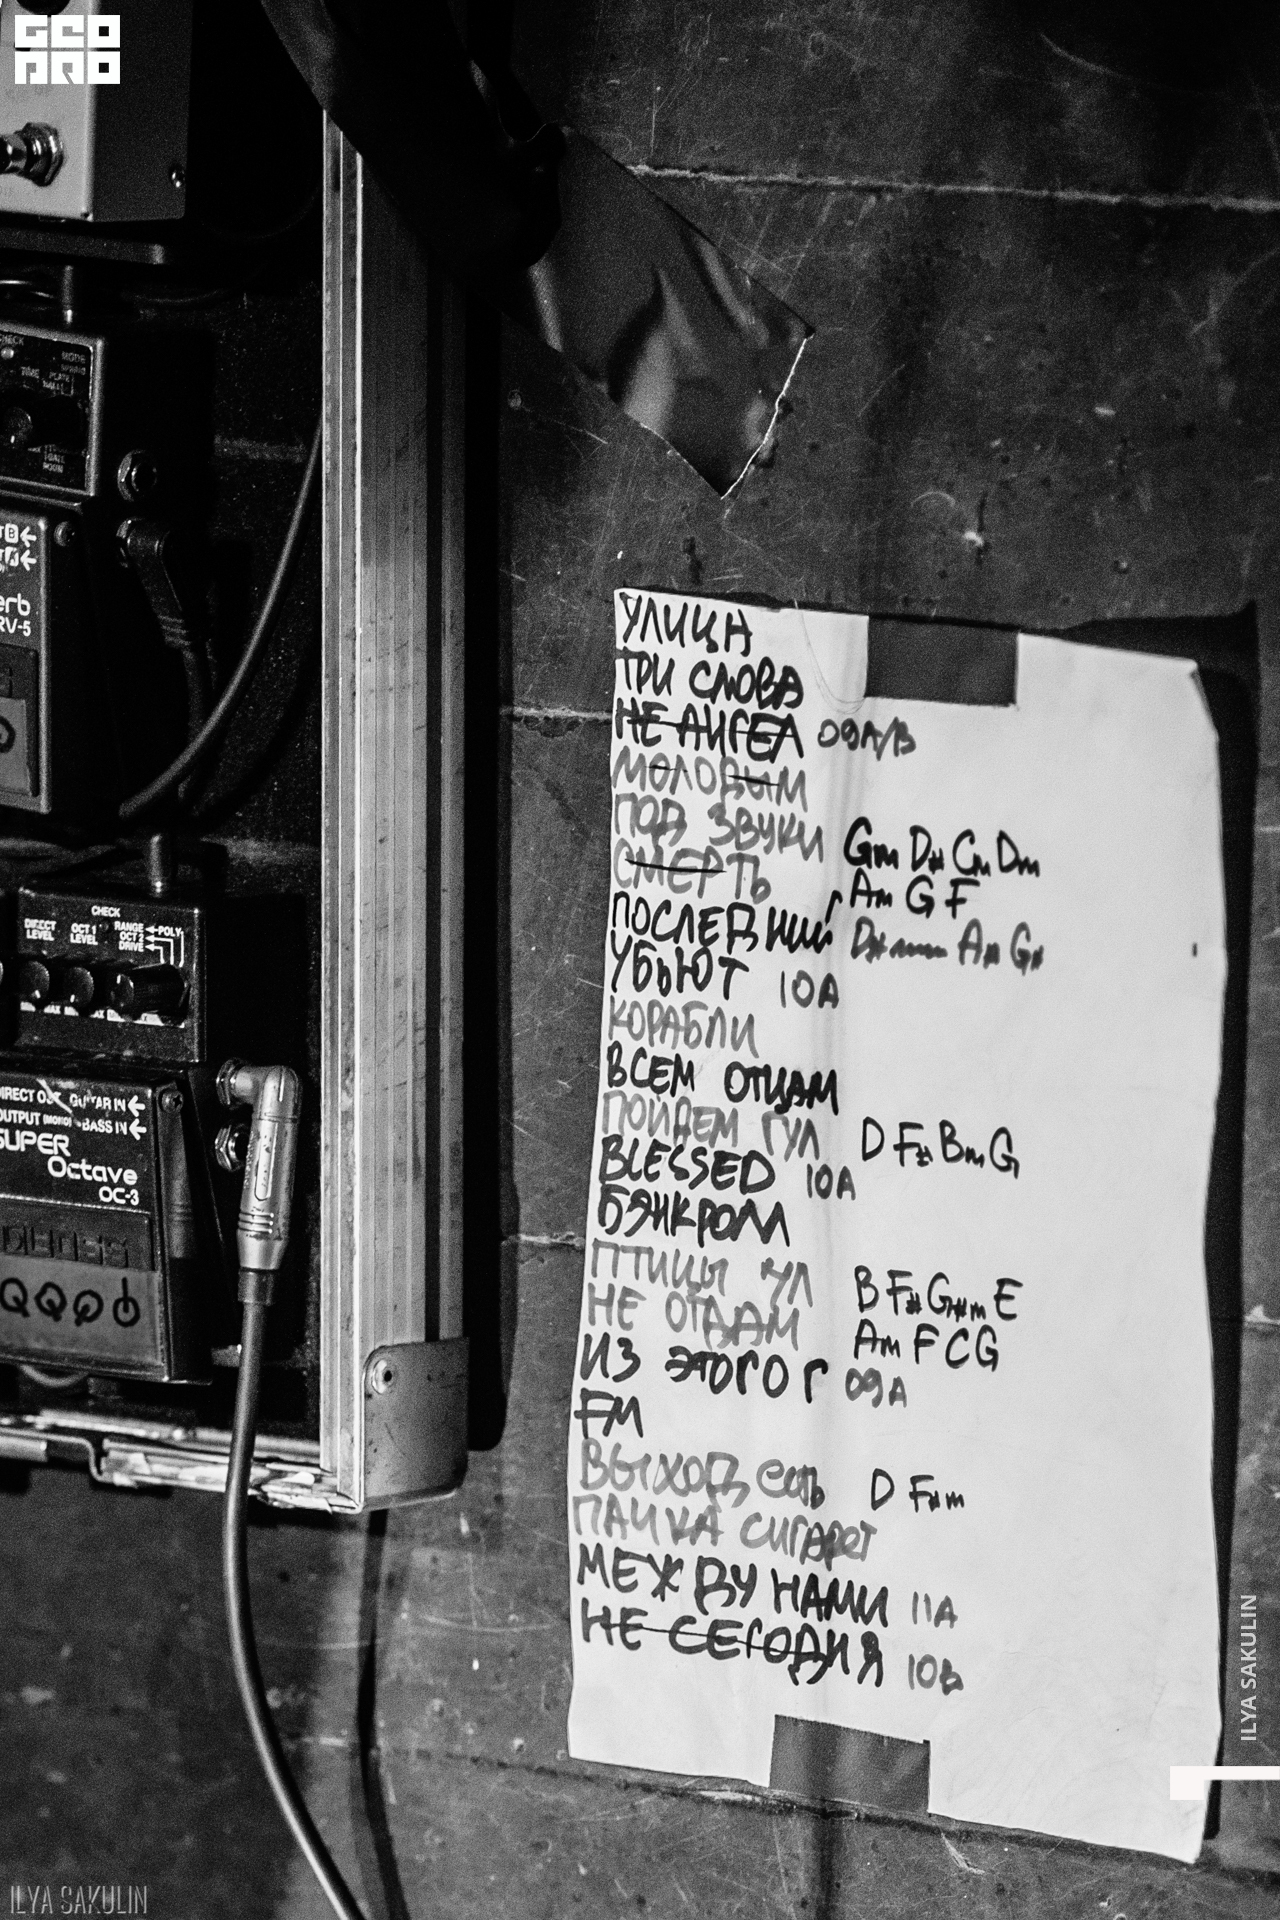 GEO
PRO
CHECK
MODE
TIME
B
A
erb
RV-5
CHECK
DIRECT LEVEL
OCT 1 LEVEL
RANGE
OCT 2
DRIVE
POLY
DIRECT OUT GUITAR IN
OUTPUT (MONO) BASS IN
SUPER
Octave
OC-3
BOSS
УЛИЦА
ТРИ СЛОВА
НЕ АНГЕЛ 09A/B
МОЛОДЫМ
ПОД ЗВУКИ Gm D# Cm Dm
СМЕРТЬ Am G F
ПОСЛЕДНИЙ
УБЬЮТ 10A
КОРАБЛИ
ВСЕМ ОТЦАМ
ПОЙДЕМ ГУЛ D F# Bm G
BLESSED 10A
БЭНКРОЛЛ
ПТИЦЫ УЛ B F# G#m E
НЕ ОТДАМ Am F C G
ИЗ ЭТОГО Г 09A
FM
ВЫХОД есть D F#m
ПАЧКА сигарет
МЕЖДУ НАМИ 11A
НЕ СЕГОДНЯ 10B
ILYA SAKULIN
ILYA SAKULIN